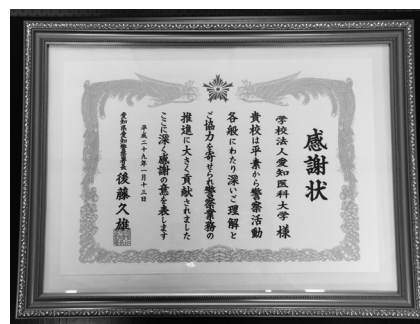 感謝状
学校法人愛知医科大学 様
貴校は平素から警察活動
各般にわたり深いご理解と
ご協力を寄せられ警察業務の
推進に大きく貢献されました
ここに深く感謝の意を表します
平成二十九年一月十三日
愛知県愛知警察署長 後藤久雄